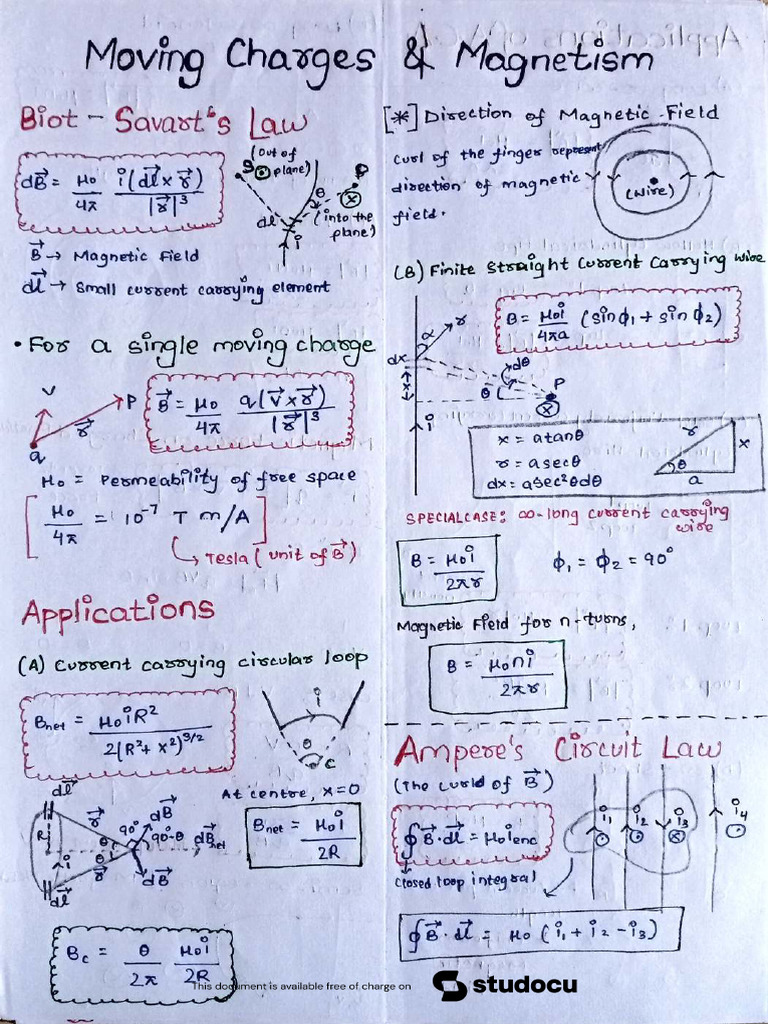 Moving Charges & Magnetism
Biot-Savart's Law
dB⃗ = μ₀/4π i(dl⃗ × r⃗)/|r⃗|³
(Out of
plane)
S
P
θ
dl
i
(into the
plane)
B⃗ → Magnetic Field
dl⃗ → Small current carrying element
• For a single moving charge
v
P
r⃗
q
B⃗ = μ₀/4π q(v⃗ × r⃗)/|r⃗|³
μ₀ = Permeability of free space
[μ₀/4π = 10⁻⁷ T m/A]
↳ Tesla (unit of B⃗)
Applications
(A) Current carrying circular loop
Bnet = μ₀iR²/2(R²+x²)³/²
i
θ
C
At centre, x=0
Bnet = μ₀i/2R
dl⃗
r⃗
dB⃗
R
90°
90°-θ
dB⃗net
θ
θ
i
r⃗
dB⃗
dl⃗
Bc = θ/2π μ₀i/2R
[*] Direction of Magnetic Field
Curl of the finger represent
direction of magnetic
field.
(wire)
(B) Finite Straight Current Carrying wire
B = μ₀i/4πa (sinϕ₁ + sinϕ₂)
α
r
dx
x
dθ
θ
P
i
x = atanθ
r = asecθ
dx = asec²θdθ
r
x
θ
a
SPECIALCASE: ∞-long current carrying
wire
B = μ₀i/2πr
ϕ₁ = ϕ₂ = 90°
Magnetic Field for n-turns,
B = μ₀ni/2πr
Ampere's Circuit Law
(The curld of B⃗)
∮B⃗·dl⃗ = μ₀ienc
Closed loop integral
i₁
i₂
i₃
i₄
∮B⃗·dl⃗ = μ₀(i₁+i₂-i₃)
This document is available free of charge on
studocu